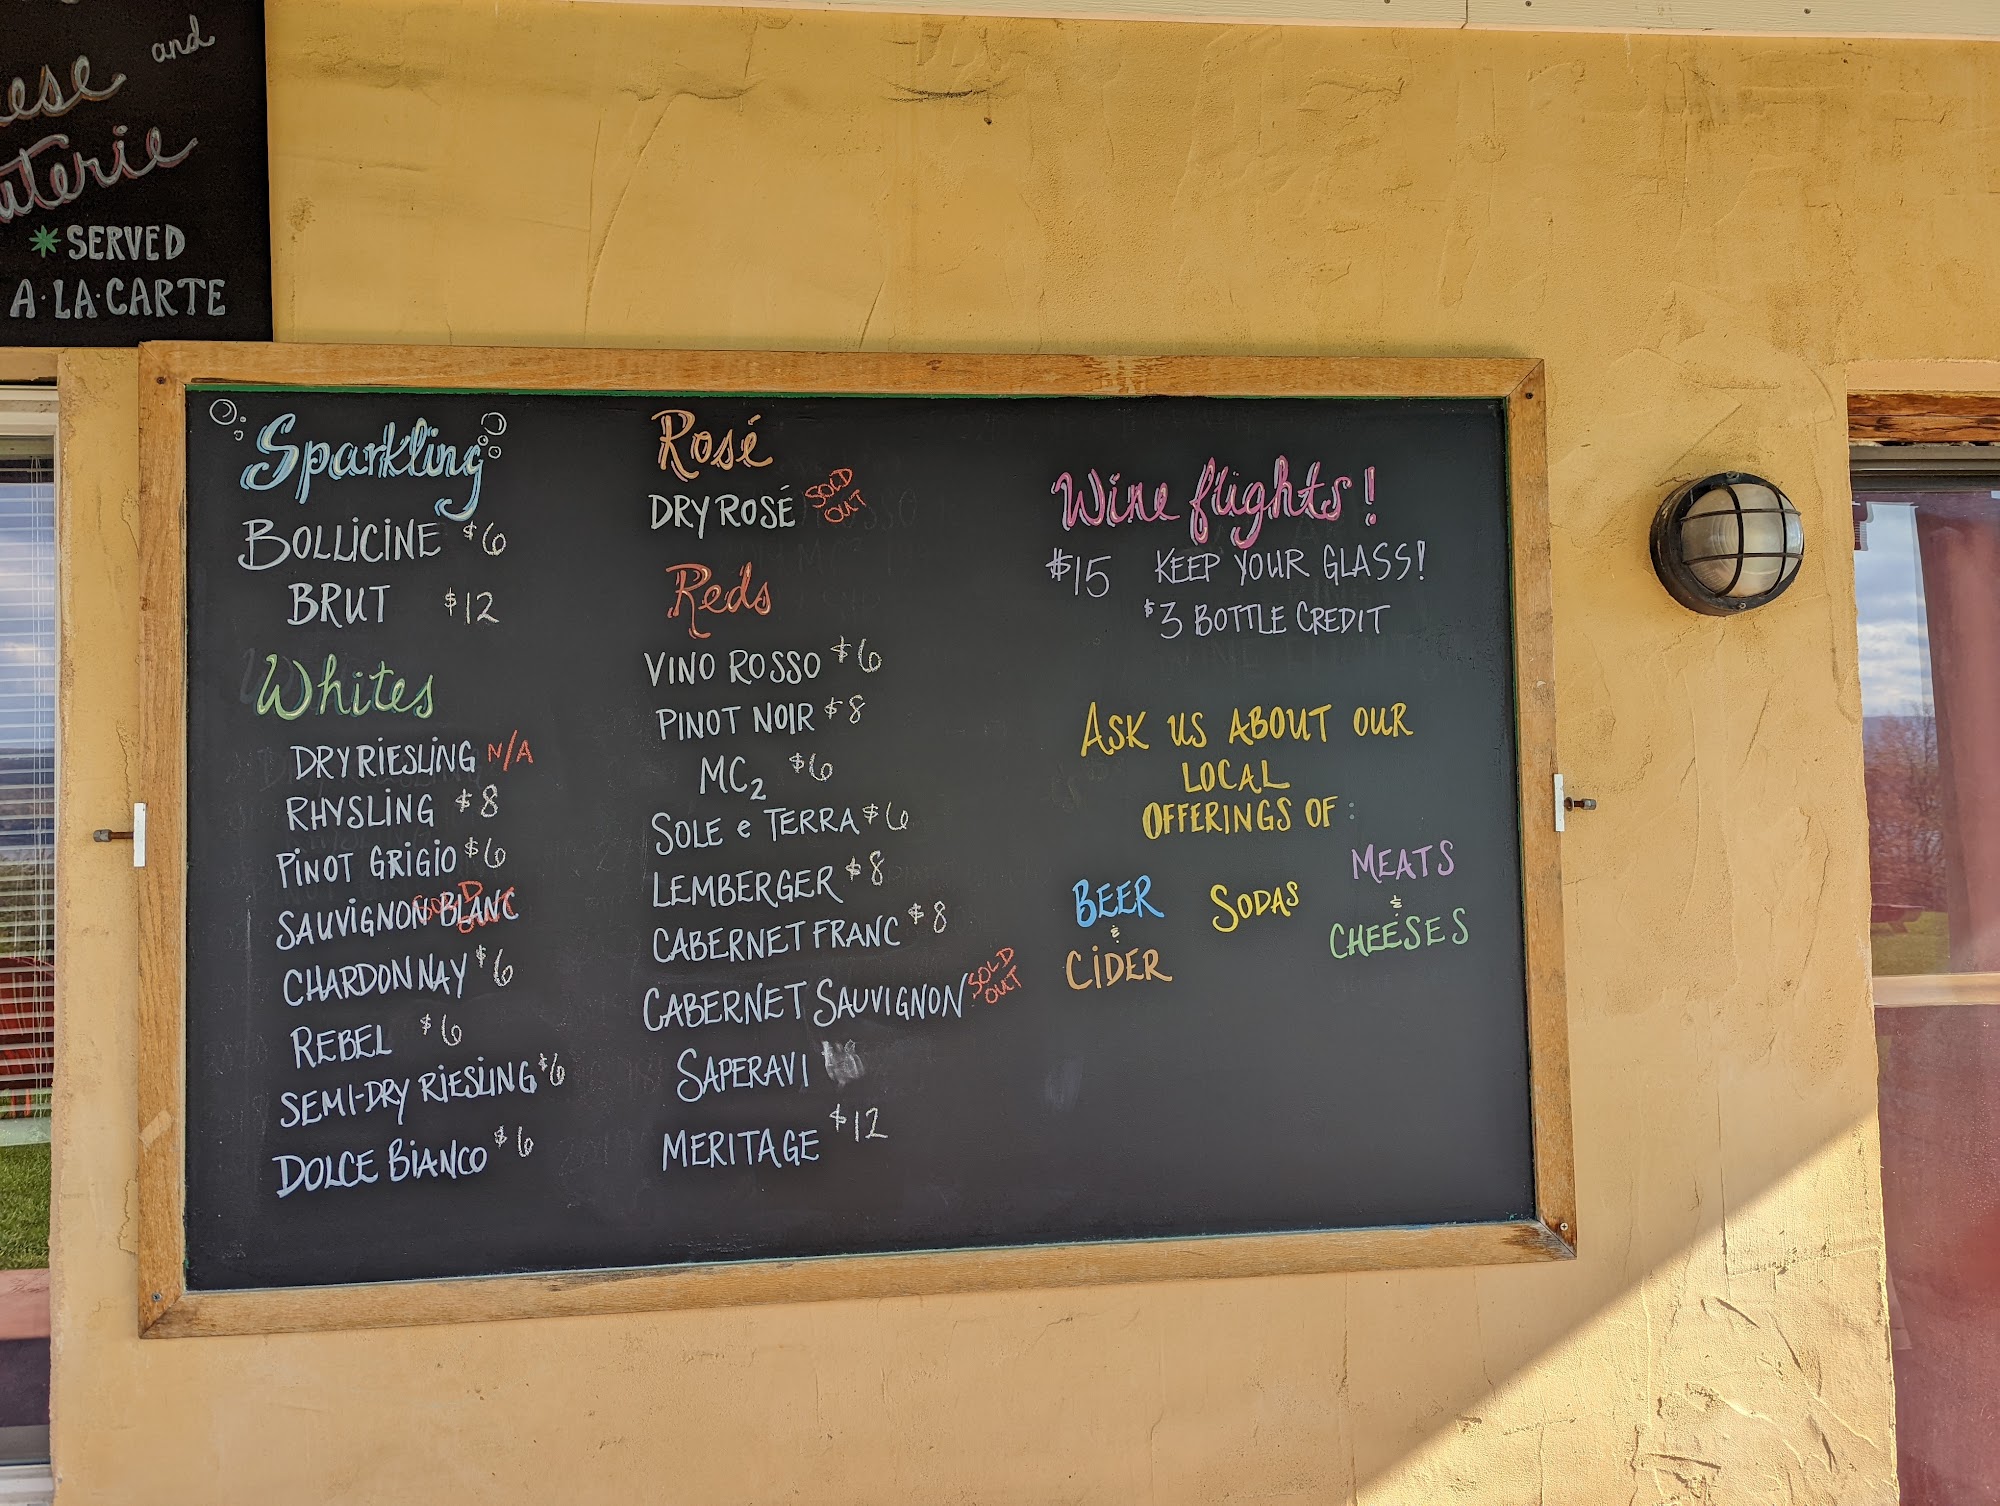 and
SERVED
A·LA·CARTE
Sparkling
BOLLICINE $6
BRUT $12
Whites
DRY RIESLING N/A
RHYSLING $8
PINOT GRIGIO $6
SAUVIGNON BLANC SOLD OUT
CHARDONNAY $6
REBEL $6
SEMI-DRY RIESLING $6
DOLCE BIANCO $6
Rosé
DRY ROSÉ SOLD OUT
Reds
VINO ROSSO $6
PINOT NOIR $8
MC2 $6
SOLE e TERRA $6
LEMBERGER $8
CABERNET FRANC $8
CABERNET SAUVIGNON SOLD OUT
SAPERAVI
MERITAGE $12
Wine flights!
$15 KEEP YOUR GLASS!
$3 BOTTLE CREDIT
ASK US ABOUT OUR
LOCAL
OFFERINGS OF:
BEER
&
CIDER
SODAS
MEATS
&
CHEESES